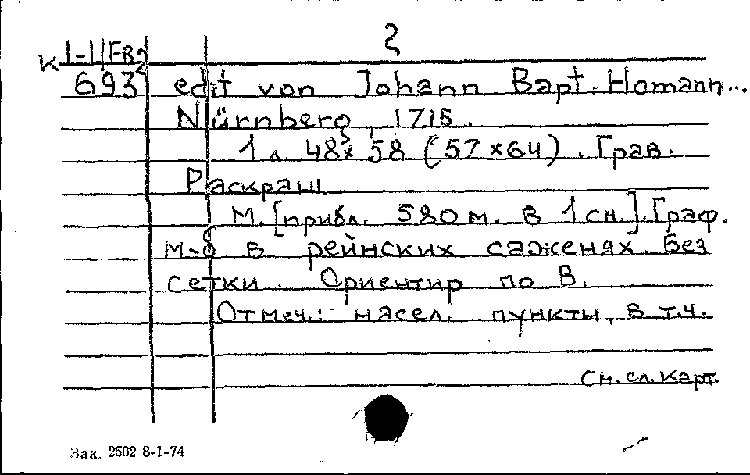 2
K 1-1/Fr2
693 edit von Johann Bapt. Homann...
Nürnberg, 1715.
1 л. 48×58 (57×64). Грав.
Раскраш.
М. [прибл. 580 м. в 1 см.]. Граф.
м-б в рейнских саженях. Без
сетки. Ориентир по В.
Отмеч.: насел. пункты, в т.ч.
См. сл. карт.
Зак. 2502 8-1-74